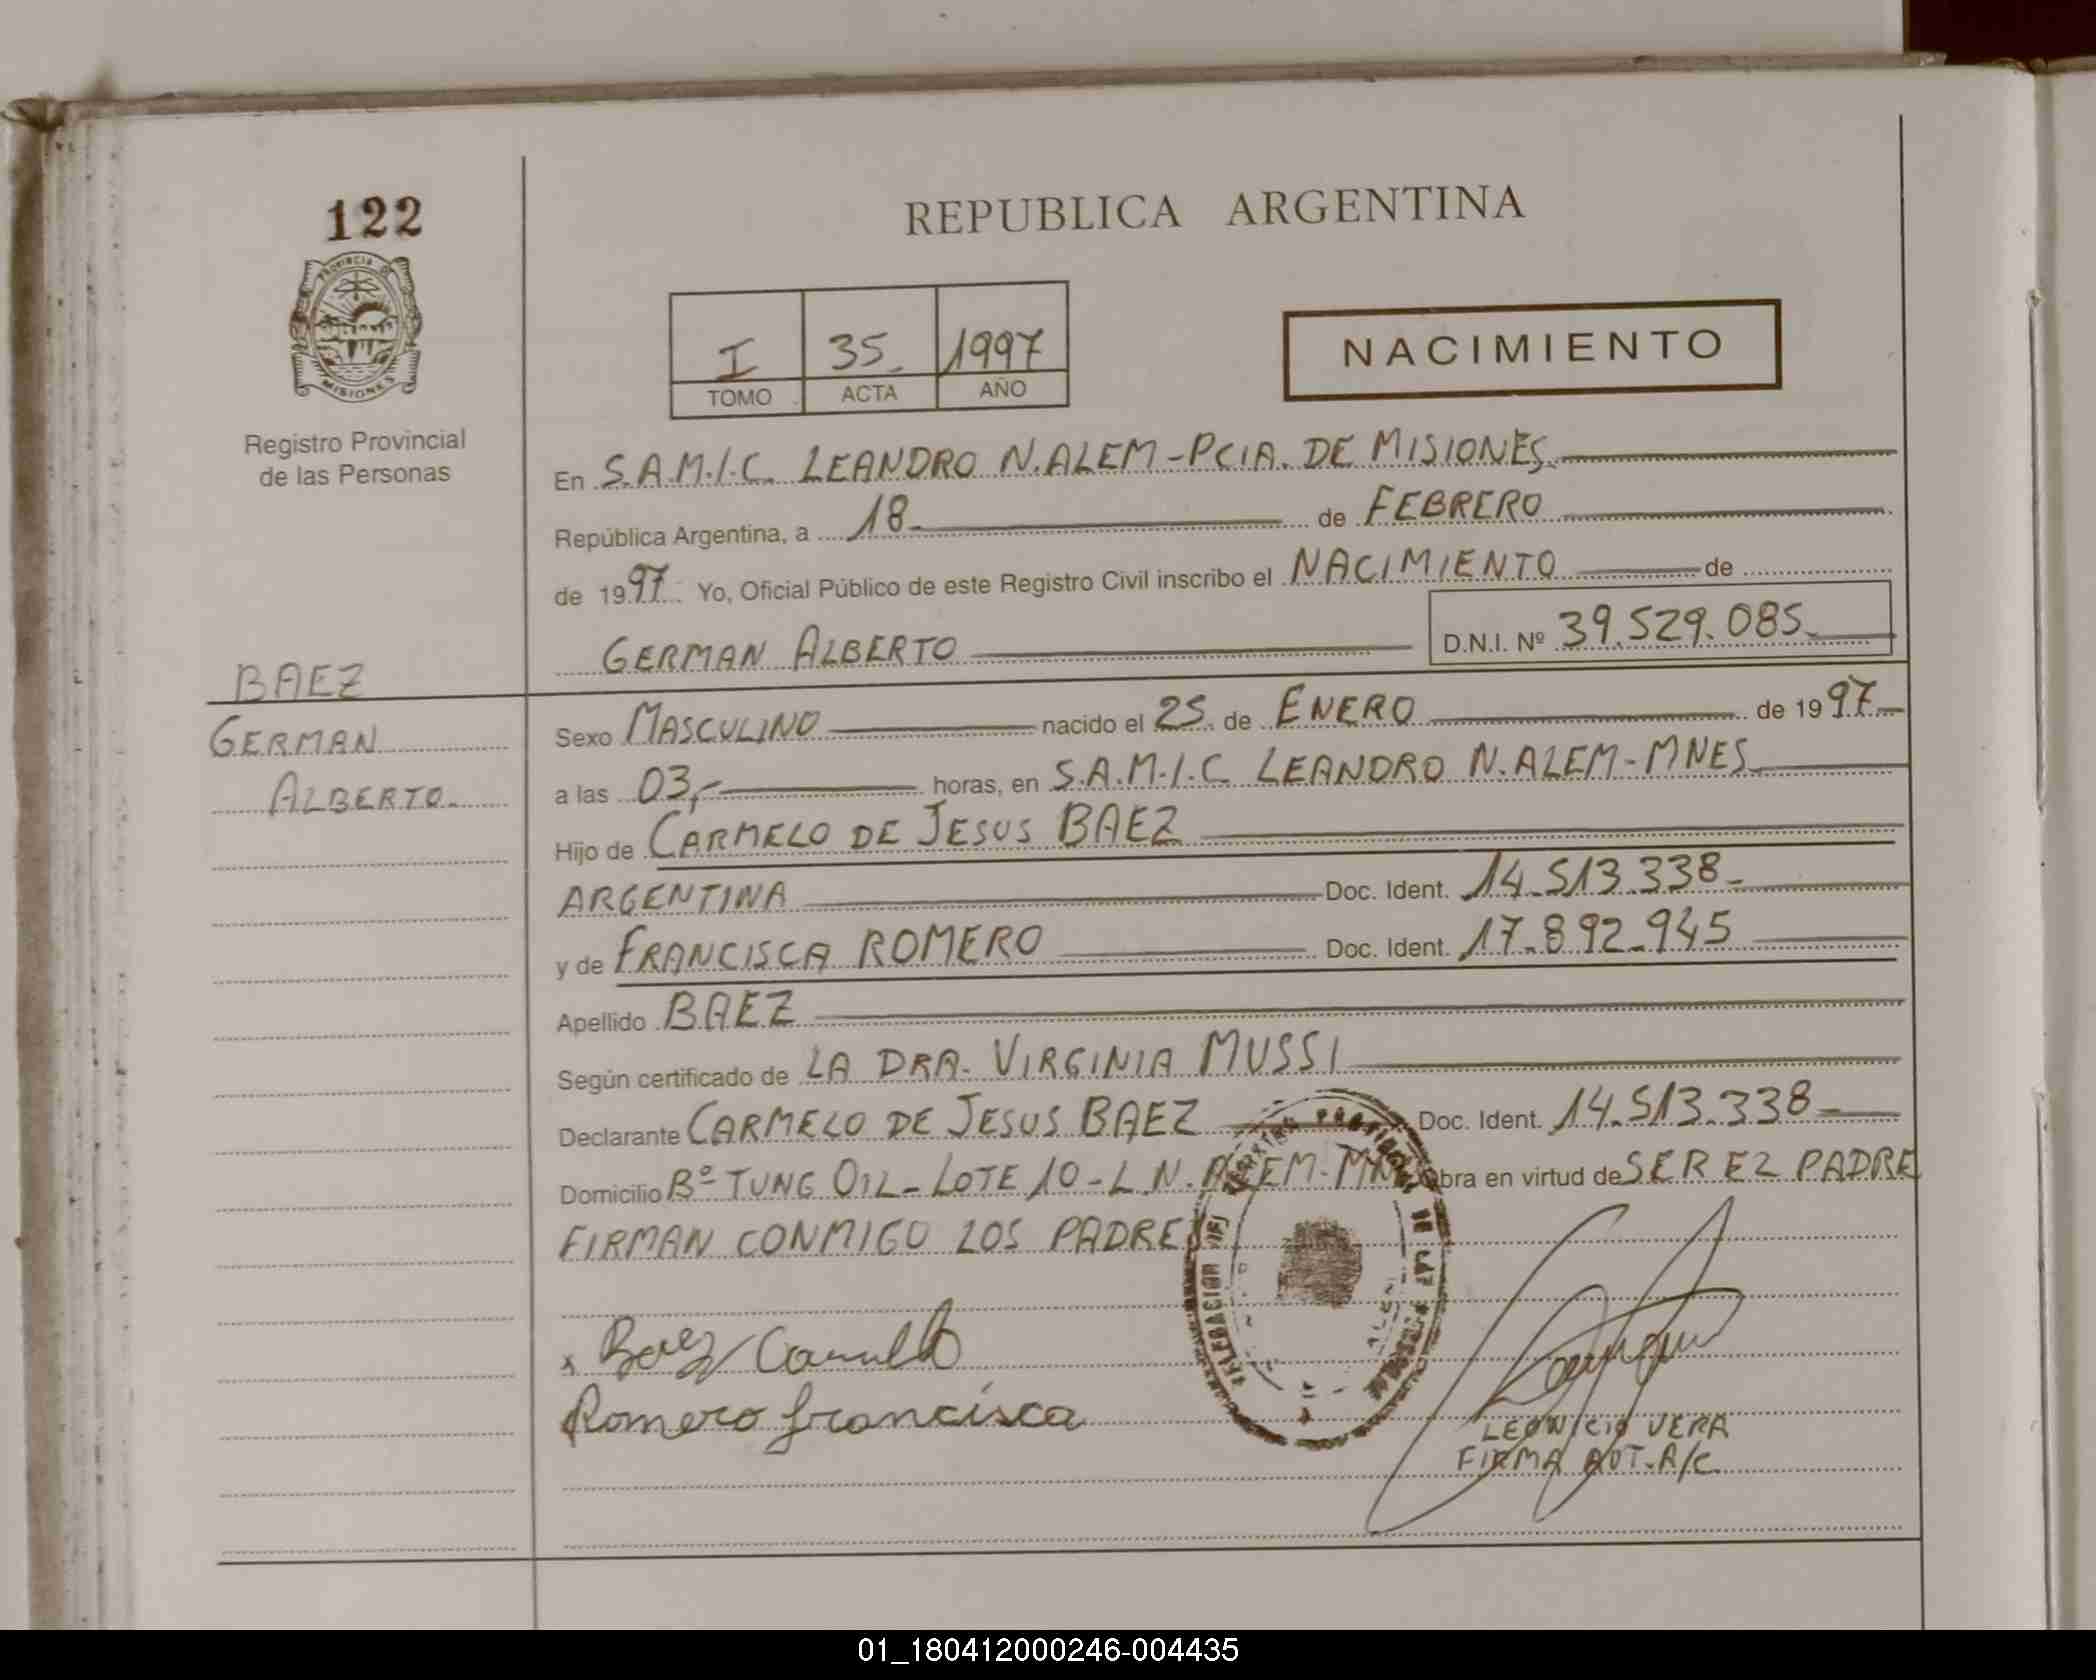 122
PROVINCIA DE
MISIONES
Registro Provincial
de las Personas
REPUBLICA ARGENTINA
I 35 1997
TOMO ACTA AÑO
NACIMIENTO
En S.A.M.I.C. LEANDRO N. ALEM - PCIA. DE MISIONES
República Argentina, a 18 de FEBRERO
de 1997 Yo, Oficial Público de este Registro Civil inscribo el NACIMIENTO de
GERMAN ALBERTO D.N.I. Nº 39.529.085
BAEZ
GERMAN
ALBERTO
Sexo MASCULINO nacido el 25 de ENERO de 1997
a las 03,- horas, en S.A.M.I.C. LEANDRO N. ALEM - MNES
Hijo de CARMELO DE JESUS BAEZ
ARGENTINA Doc. Ident. 14.513.338
y de FRANCISCA ROMERO Doc. Ident. 17.892.945
Apellido BAEZ
Según certificado de LA DRA. VIRGINIA MUSSI
Declarante CARMELO DE JESUS BAEZ Doc. Ident. 14.513.338
Domicilio Bº TUNG OIL - LOTE 10 - L.N. ALEM - MN Obra en virtud de SER EL PADRE
FIRMAN CONMIGO LOS PADRES
Baez
Romero francisca
LEONICIO VERA
FIRMA AUT. A/C
01_180412000246-004435